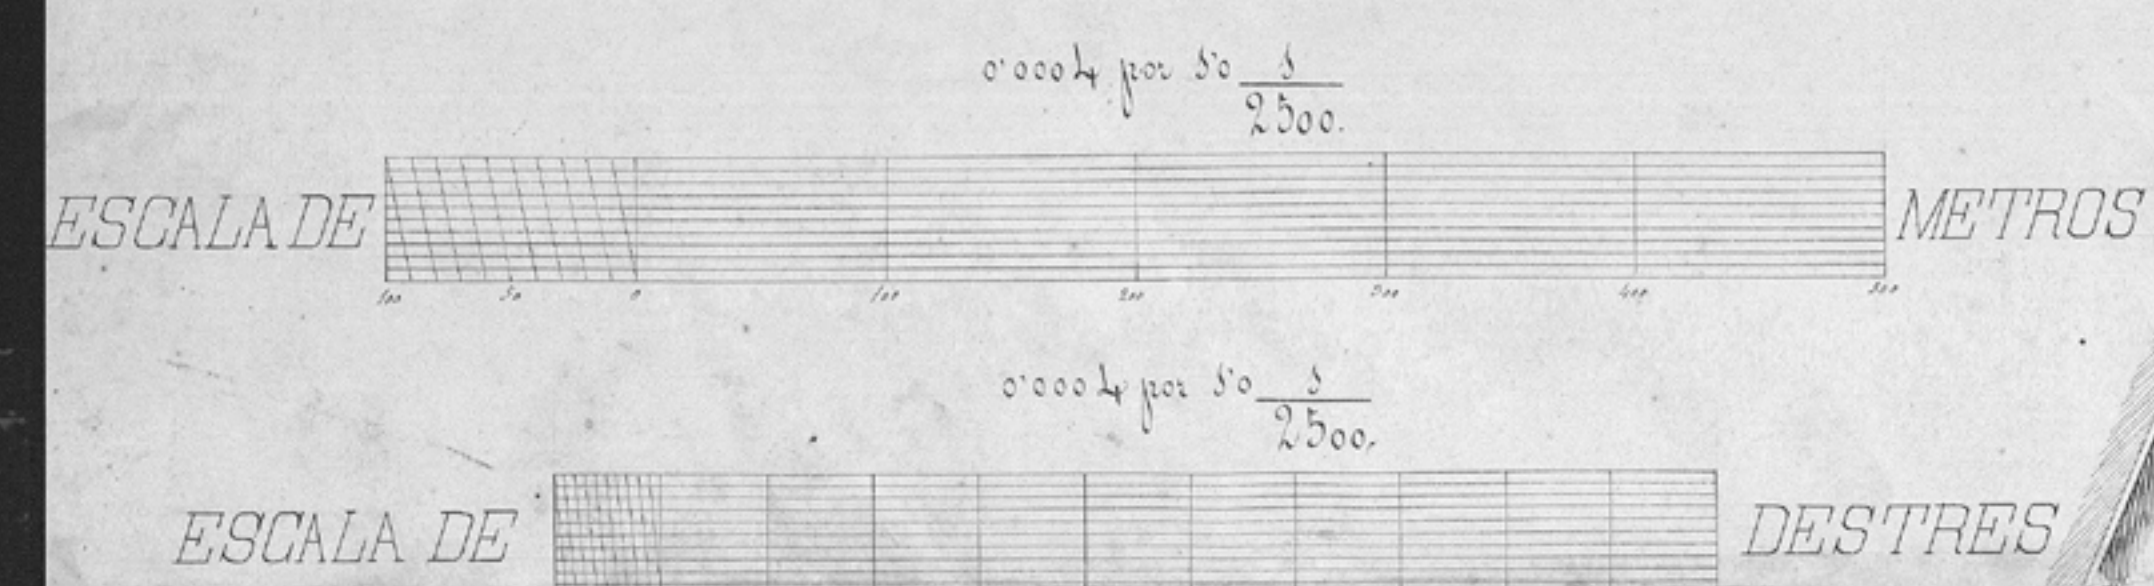 0'0004 por 1'0 1/2500.
ESCALA DE METROS
100 50 0 100 200 300 400 500
0'0004 por 1'0 1/2500.
ESCALA DE DESTRES